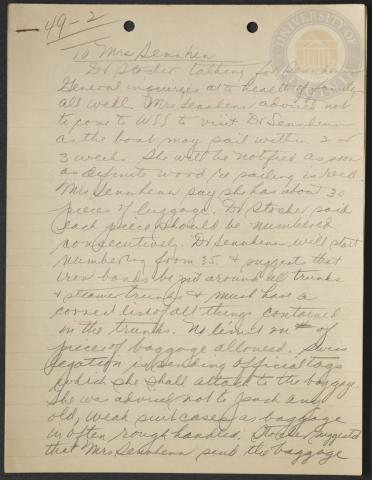 49-2
To Mrs Sennhenn
Dr Stocher talking for Sennhenn
General inquiries as to health of family
all well. Mrs Sennhenn advised not
to come to WSS to visit Dr Sennhenn
as the boat may sail within 2 or
3 weeks. She will be notified as soon
as definite word re sailing is rec'd.
Mrs Sennhenn say she has about 30
pieces of luggage. Dr Stocher said
each piece should be numbered
consecutively. Dr Sennhenn will start
numbering from 35. & suggest that
iron bands be put around all trunks
& steamer trunks & must have a
correct list of all things contained
in the trunks. No limit on # of
pieces of baggage allowed. Swiss
Legation is sending official tags
which she shall attach to the baggage.
She was advised not to pack any
old, weak suitcases as baggage
is often rough handled. Stocher suggested
that Mrs Sennhenn send the baggage
UNIVERSITY OF